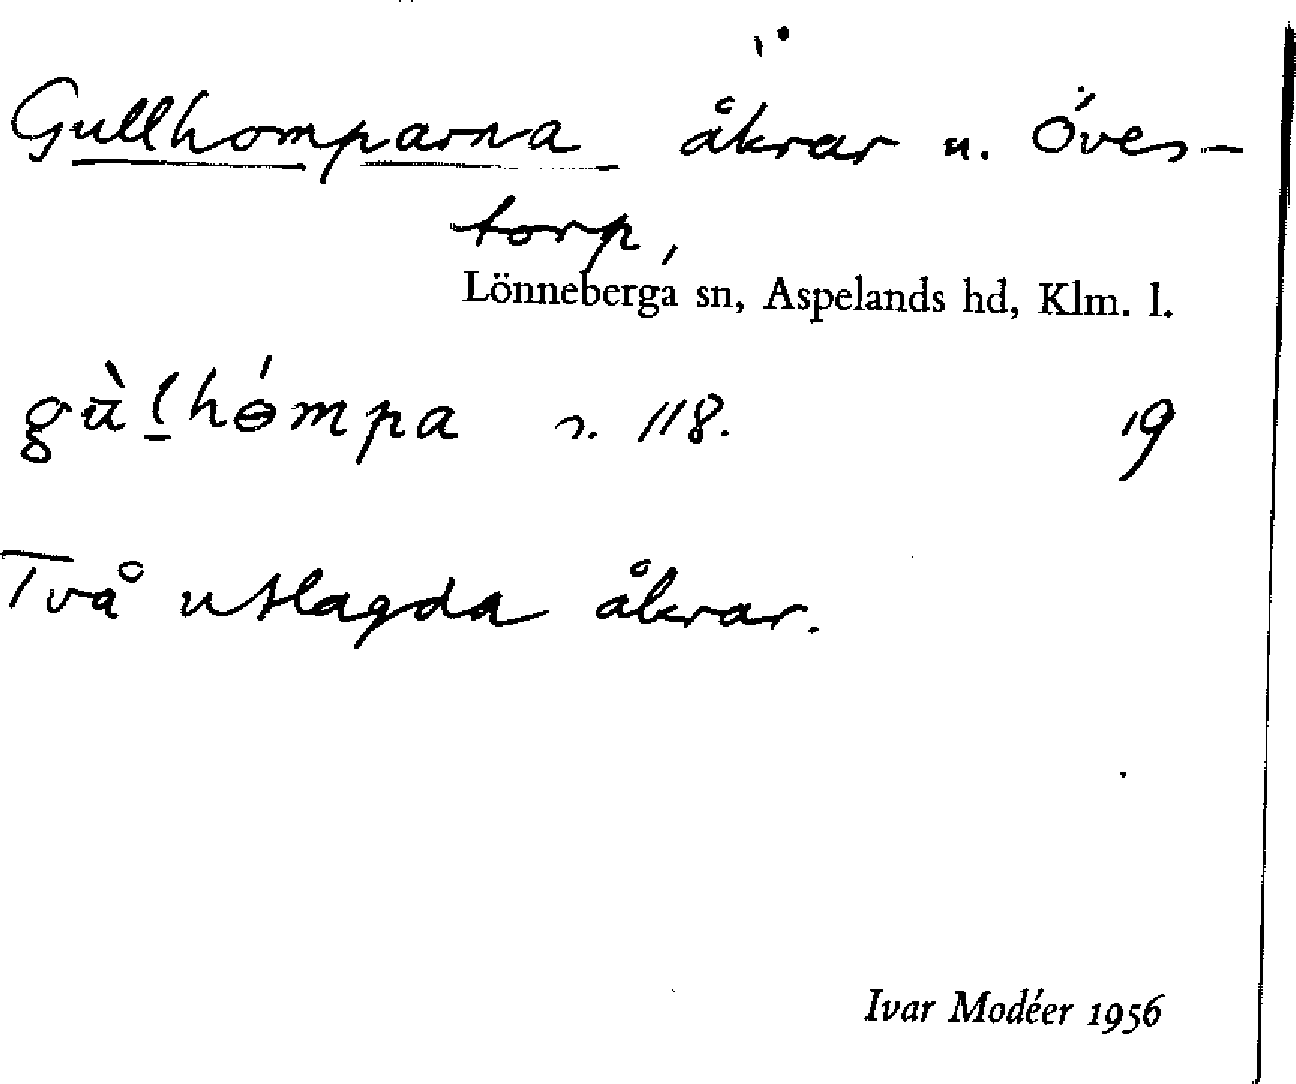 Gullhomparna åkrar u. Öves-
torp,
Lönneberga sn, Aspelands hd, Klm. l.
gùlhómpa s. 118. 19
Två utlagda åkrar.
Ivar Modéer 1956